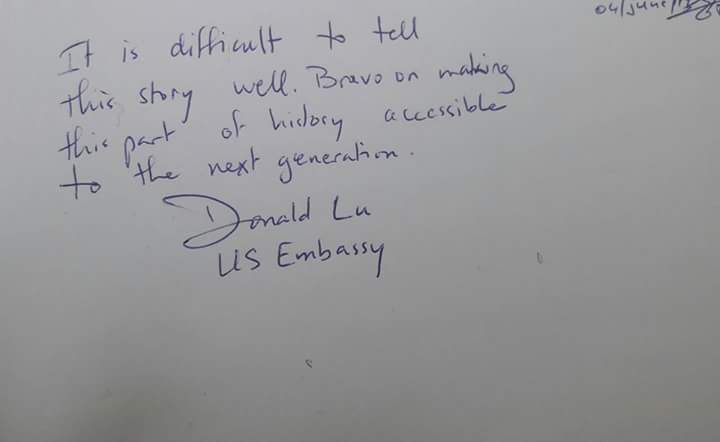 04/June/
It is difficult to tell
this story well. Bravo on making
this part of history accessible
to the next generation.
Donald Lu
US Embassy